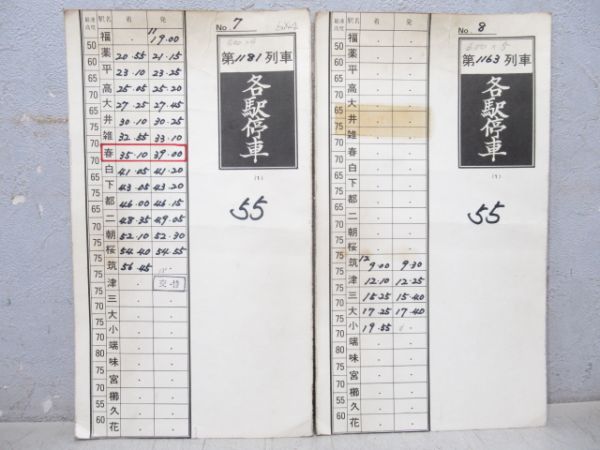 最高速度 駅名 着 発
No. 7
第1181列車
各駅停車
(1)
55
福 11 19.00
50
薬 20.55 21.15
65
平 23.10 23.25
70
高 25.05 25.20
大 27.25 27.45
65
井 30.10 30.25
雑 32.55 33.10
70
春 35.10 39.00
75
白 41.05 41.20
70
下 43.05 43.20
65
都 46.00 46.15
二 48.35 49.05
75
朝 52.10 52.30
桜 54.40 54.55
筑 56.45
75
津 交替
三
大
小
70
端
80
味
宮
70
櫛
55
久
60
花
最高速度 駅名 着 発
No. 8
600×5
第1163列車
各駅停車
(1)
55
福
50
薬
65
平
70
高
大
65
井
雑
70
春
75
白
70
下
65
都
二
75
朝
桜
筑 12 9.00 9.30
75
津 12.10 12.25
三 15.25 15.40
大 17.25 17.40
小 19.55
70
端
80
味
宮
70
櫛
55
久
60
花